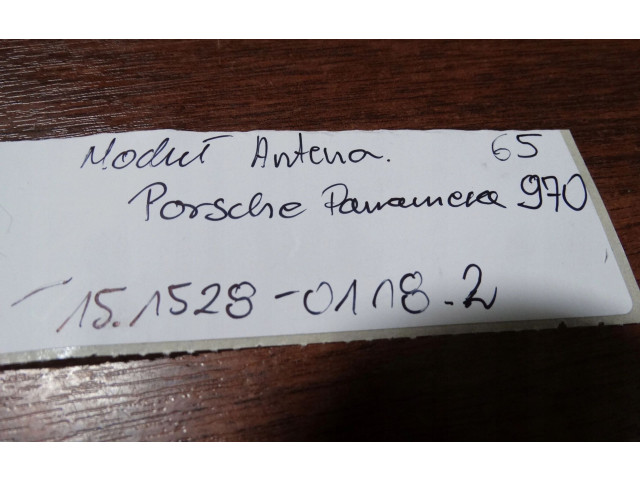 Moduł Antena. 65
Porsche Panamera 970
15.1528-0118.2